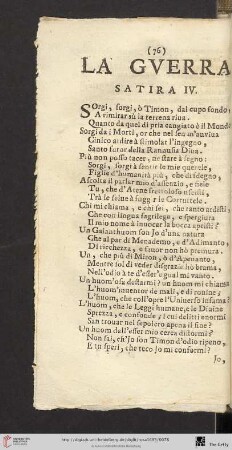 (76)
LA GVERRA
SATIRA IV.
Sorgi, sorgi, ò Timon, dal cupo fondo,
A rimirar sù la terrena riua,
Quanto da quel di pria cangiato è il Mondo
Sorgi da i Morti, or che nel sen m'arriua
Cinico ardire à stimolar l'ingegno,
Santo furor della Ranusia Diua.
Più non posso tacer, ne stare à segno:
Sorgi, sorgi à sentir le mie querele,
Figlie d'humanità più, che di sdegno,
Ascolta il parlar mio d'assenzio, e fiele
Tu, che d'Atene frettoloso uscisti
Trà le selue à fuggir le Cortigiane.
Chi mi chiama, e chi sei, che tanto ardisti,
Che con lingua sagrilega, e spergiura
Il mio nome à inuocar la bocca apristi?
Un Galanthuom son Io d'una natura
Che al par di Mecademo, e d'Alimanto,
Di ricchezza, e fauor non hò premura.
Un, che più di Miron, ò d'Apemanto,
Mentre sol di veder disgrazie hò brama,
Nell'odio à te d'esser ugual mi vanto.
Un huom m'osa destarmi? un huom mi chiama
L'huom inuentor de mali, e di rouine;
L'huom, che coll'opre l'Universo infama?
L'huom, che le Leggi humane, e le Diuine
Sprezza, e confonde; i cui delitti enormi
San trouar nel sepolcro apena il fine?
Un huom dell'esser mio cerca distormi?
Non sai, ch'Io son Timon d'odio ripieno,
E tu speri, che teco Io mi conformi?
Io,